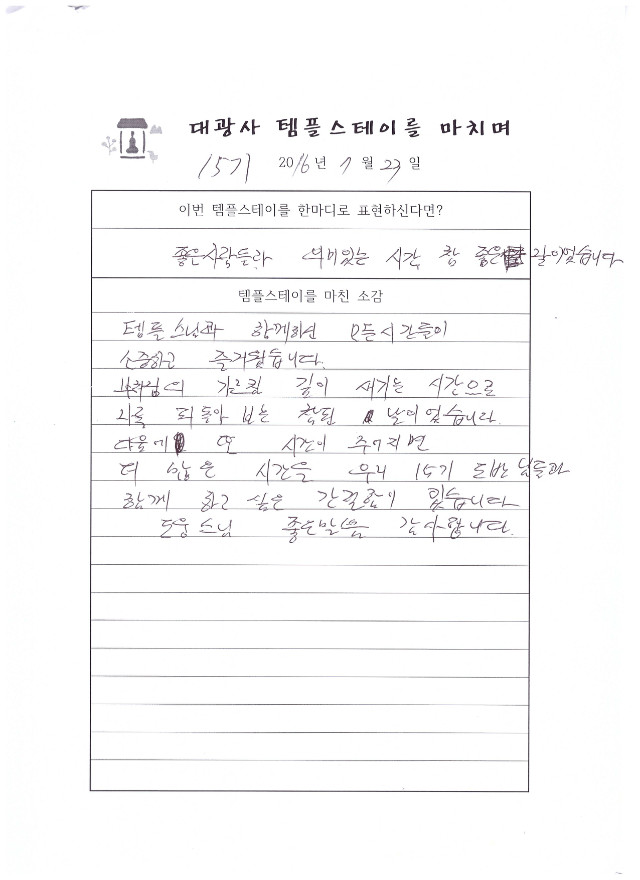 대광사 템플스테이를 마치며
15기 2016년 7월 23일
이번 템플스테이를 한마디로 표현하신다면?
좋은사람들과 의미있는 시간 참 좋은 길이었습니다
템플스테이를 마친 소감
템플스님과 함께하신 모든시간들이
소중하고 즐거웠습니다.
부처님의 가르침 깊이 새기는 시간으로
나를 되돌아 보는 참된 날이었습니다.
다음에 또 시간이 주어지면
더 많은 시간을 우리 15기 도반님들과
함께 하고 싶은 간절함이 있습니다
도웅스님 좋은말씀 감사합니다.